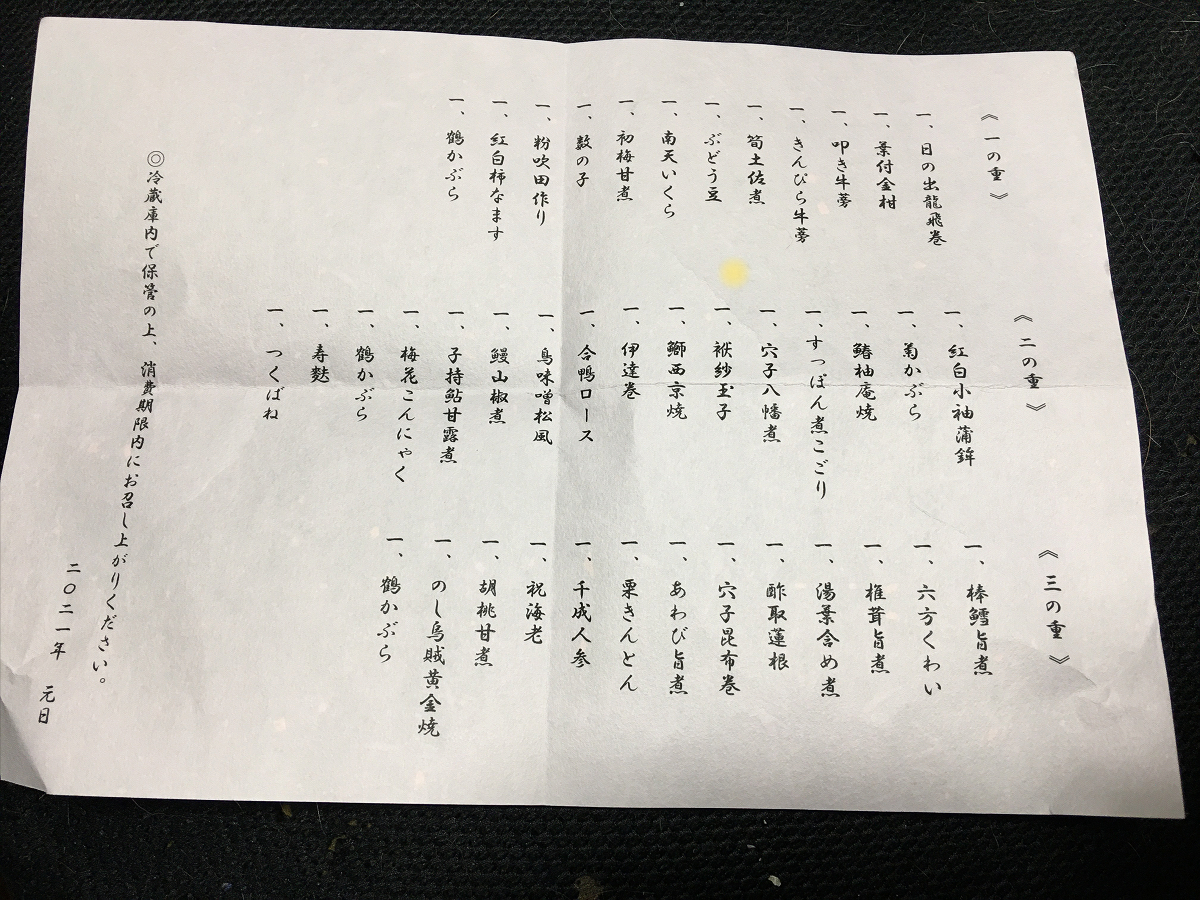 《一の重》
一、日の出龍飛巻
一、葉付金柑
一、叩き牛蒡
一、きんぴら牛蒡
一、筍土佐煮
一、ぶどう豆
一、南天いくら
一、初梅甘煮
一、数の子
一、粉吹田作り
一、紅白柿なます
一、鶴かぶら
《二の重》
一、紅白小袖蒲鉾
一、菊かぶら
一、鰆柚庵焼
一、すっぽん煮こごり
一、穴子八幡煮
一、袱紗玉子
一、鰤西京焼
一、伊達巻
一、合鴨ロース
一、鳥味噌松風
一、鰻山椒煮
一、子持鮎甘露煮
一、梅花こんにゃく
一、鶴かぶら
一、寿麩
一、つくばね
《三の重》
一、棒鱈旨煮
一、六方くわい
一、椎茸旨煮
一、湯葉含め煮
一、酢取蓮根
一、穴子昆布巻
一、あわび旨煮
一、栗きんとん
一、千成人参
一、祝海老
一、胡桃甘煮
一、のし烏賊黄金焼
一、鶴かぶら
◎冷蔵庫内で保管の上、消費期限内にお召し上がりください。
二〇二一年　元日